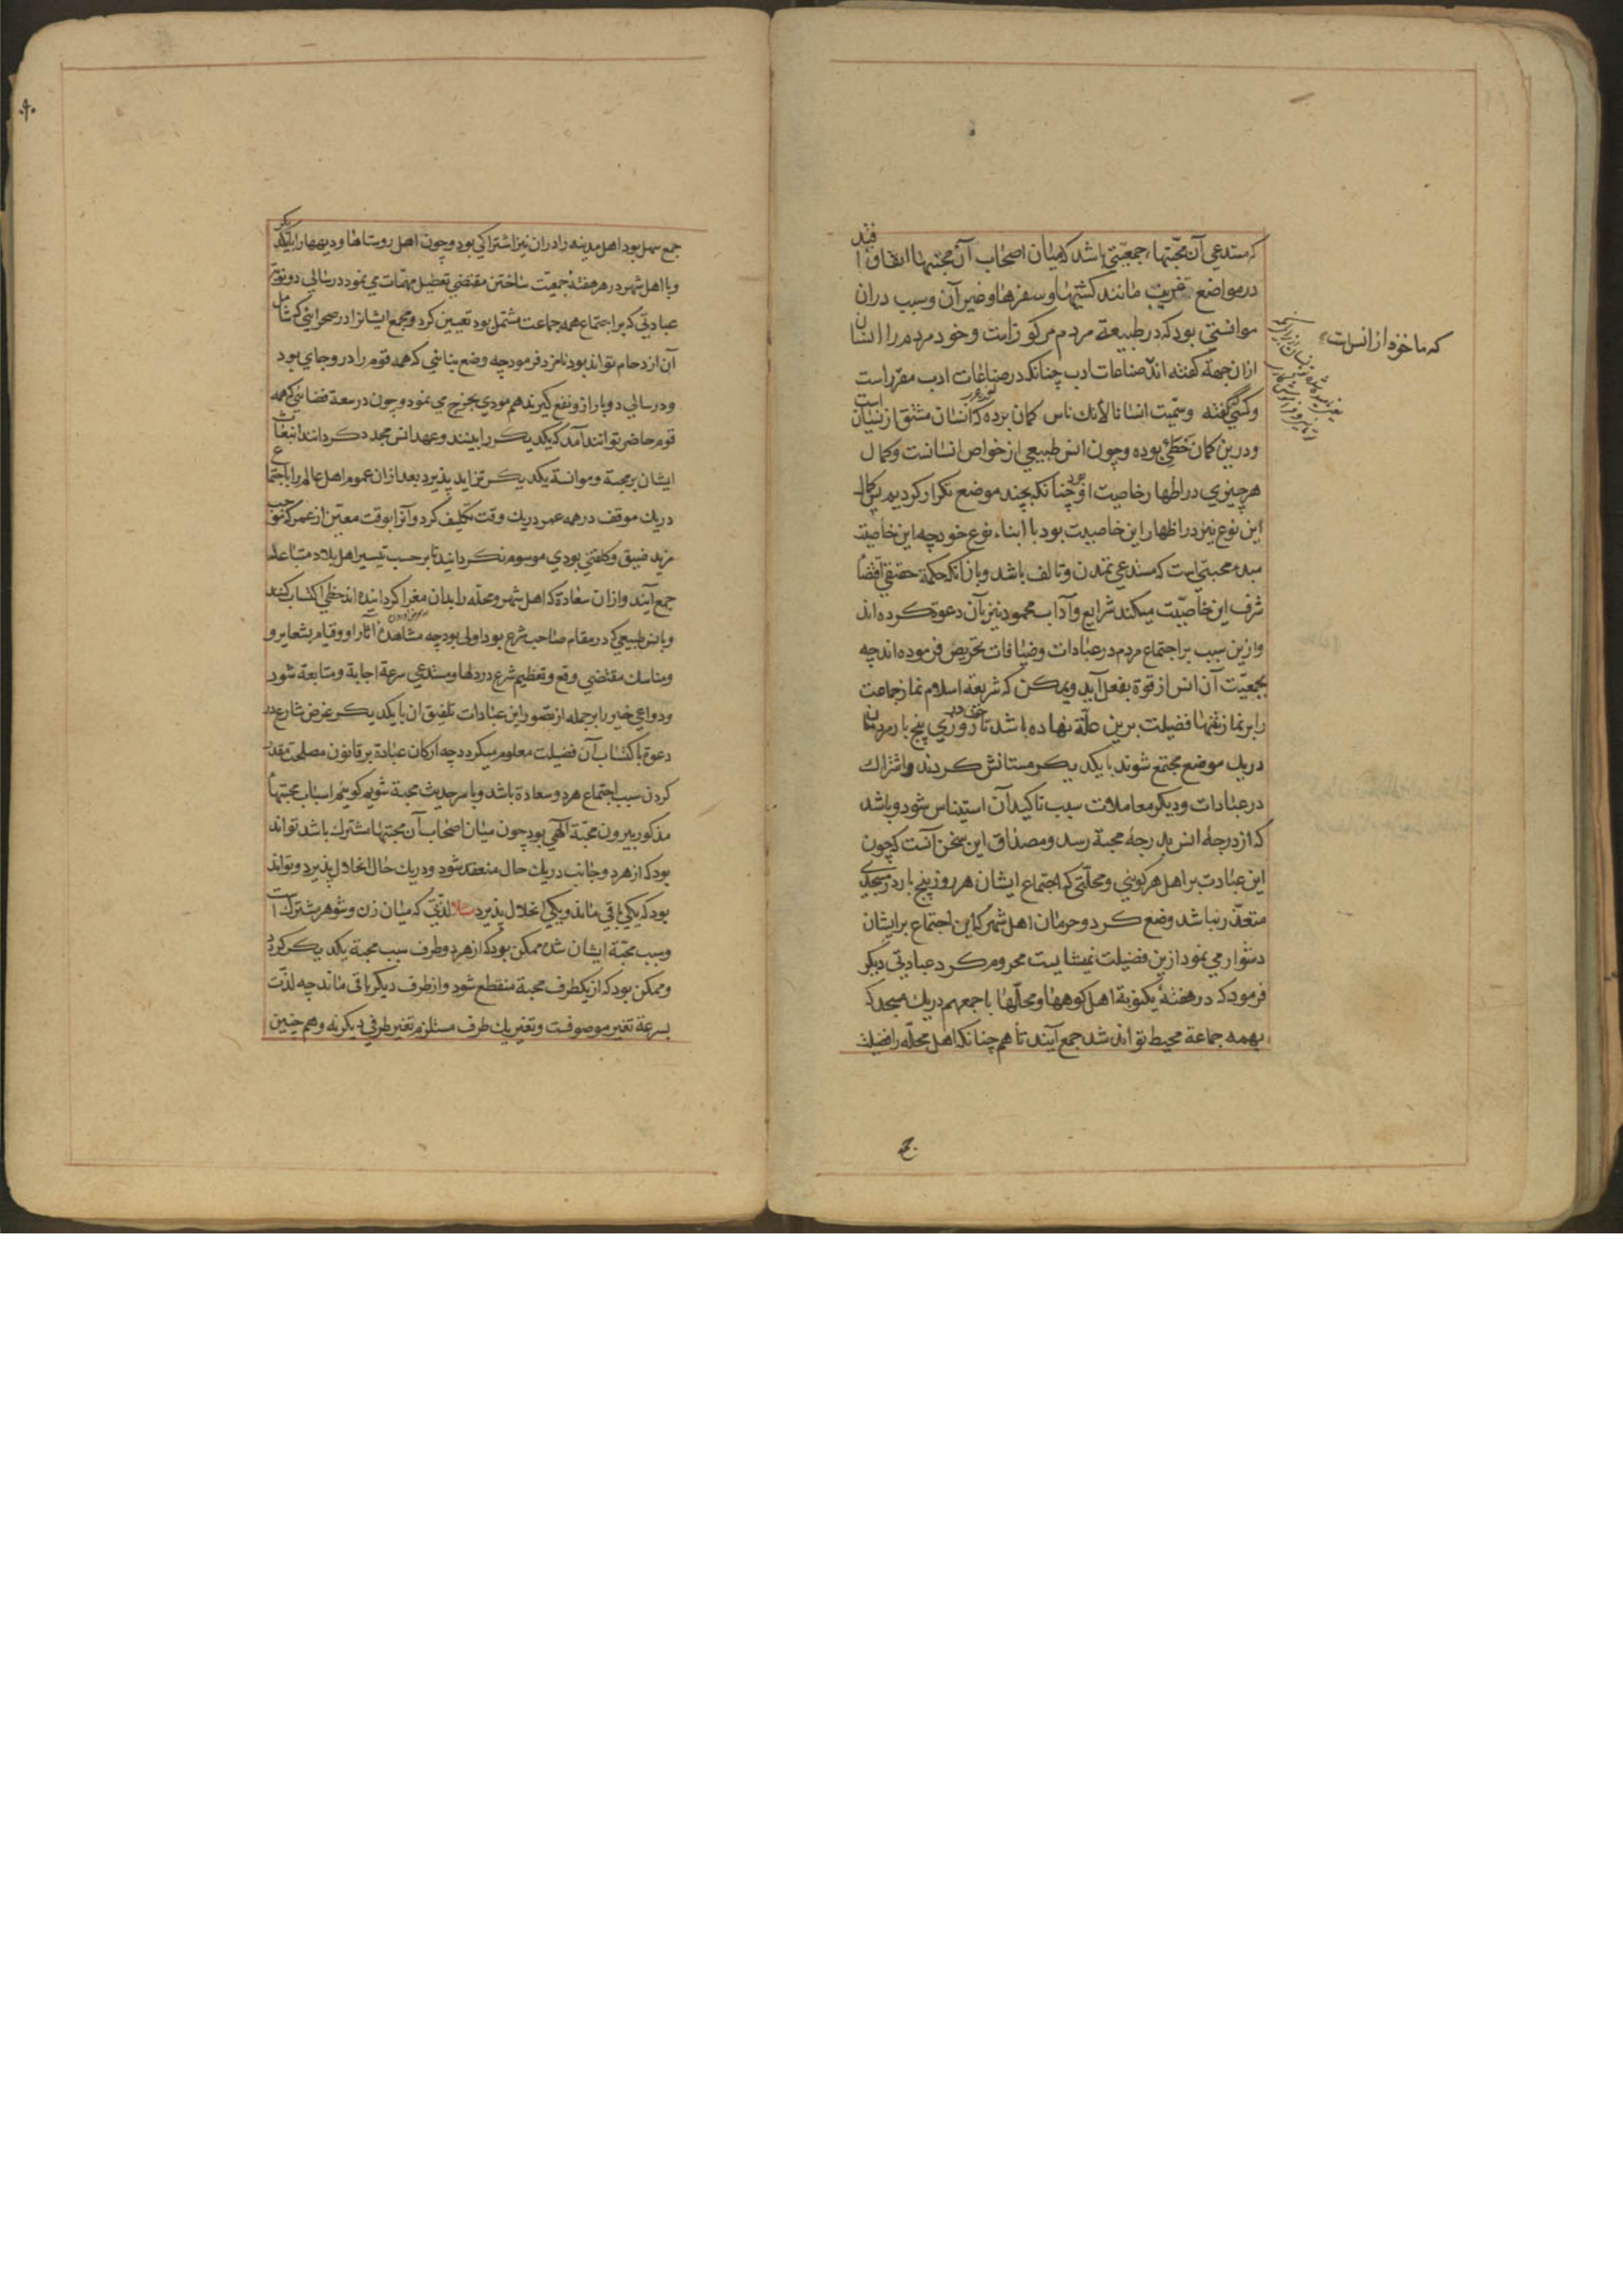 که مستدعی آن محبتها، جمعیتی باشد که میان اصحاب آن محبتها اتفاق افتد
در مواضع غریب مانند کشتیها و سفرها و غیر آن و سبب دران
موانستی بود که در طبیعة مردم مرکوزاست و خود مردم را انسان
که ماخوذ از انس است
ازان جهة گفته اند صناعات ادب چنانکه در صناعات ادب مقرر است
وکسی گفته وسمیت انسانا لانك ناس کمان برده که انسان مشتق از نسیان است
ودرین کمان مخطئ بوده وچون انس طبیعی از خواص انسانست وکمال
هر چیزی در اظهار خاصیت او بود چنانکه بچند موضع تکرار کردیم پس کمال
این نوع نیز در اظهار این خاصیت بود با ابناء نوع خود چه این خاصیت
مبدء محبتی است که مستدعی تمدن و تالف باشد و باز آنکه حکمة حقیقی اقتضاء
شرف این خاصیت میکند شرایع و آداب محمود نیز بآن دعوة کرده اند
وازین سبب بر اجتماع مردم در عبادات و ضیافات تحریض فرموده اند چه
بجمعیت آن انس از قوة بفعل آید و یمکن که شریعة اسلام نماز جماعت
را بر نماز تنها فضیلت برین علة نهاده باشد تا چون در روزی پنج بار مردمان
در یك موضع مجتمع شوند با یکدیکر مستانس کردند و اشتراك
در عبادات و دیکر معاملات سبب تاکید آن استیناس شود و باشد
که از درجهٔ انس بدرجهٔ محبة رسد و مصداق این سخن آنست که چون
این عبادت بر اهل هر کویی و محلتی که اجتماع ایشان هر روز پنج بار در مسجدی
متعذر نباشد وضع کرد و حرمان اهل شهر که این اجتماع بر ایشان
دشوار می نمود ازین فضیلت نمیشایست محروم کرد عبادتی دیکر
فرمود که در هفتهٔ یکنوبة اهل کوهها و محلها باجمعهم در یك مسجد که
بهمه جماعة محیط تواند شد جمع آیند تا هم چنانکه اهل محله را فضیلت
جمع سهل بود اهل مدینه را دران نیز اشتراکی بود و چون اهل روستاها و دیهها را با یکدیکر
و با اهل شهر در هر هفتهٔ جمعیت ساختن مقتضی تعطیل مهمات می نمود در سالی دو نوبة
عبادتی که بر اجتماع همه جماعت مشتمل بود تعیین کرد و مجمع ایشانرا در صحرایی که شامل
آن ازدحام تواند بود نامزد فرمود چه وضع بنایی که همه قوم را درو جای بود
و در سالی دو بار ازو نفع گیرند هم مودی بحرج می نمود و چون در سعة فضایی که همه
قوم حاضر توانند آمد که یکدیکر را بینند و عهد انس مجدد کردانند انبعاث
ایشان بر محبة و موانسة یکدیکر تزاید پذیرد بعد ازان عموم اهل عالم را باجتماع
در یك موقف در همه عمر در یك وقت تکلیف کرد و آنرا بوقت معین از عمر که موجب
مزید ضیق و کلفتی بودی موسوم نکردانید تا بر حسب تیسیر اهل بلاد متباعد
جمع آیند و ازان سعادة که اهل شهر و محله را بدان مغرا کردانیده اند حظی اکتساب کنند
و بانس طبیعی که در مقام صاحب شرع بود اولی بود چه مشاهدهٔ آثار او و قیام بشعایر و
ومناسك مقتضی وقع و تعظیم شرع در دلها و مستدعی سرعة اجابة و متابعة شود
و دواعی خیر را بر جمله از تصور این عبادات تلفیق ان با یکدیکر غرض شارع در
دعوة باکتساب آن فضیلت معلوم میکردد چه ارکان عبادة بر قانون مصلحت مقدر
کردن سبب اجتماع هر دو سعادة باشد و با سر حدیث محبة شویم کوییم اسباب محبتهاء
مذکور بیرون محبة الهی بود چون میان اصحاب آن محبتها مشترك باشد تواند
بود که از هر دو جانب در یك حال منعقد شود و در یك حال انحلال پذیرد و تواند
بود که یکی باقی ماند و یکی انحلال پذیرد مثلا لذتی که میان زن و شوهر مشترك است
وسبب محبة ایشان شده ممکن بود که از هر دو طرف سبب محبة یکدیکر کردد
و ممکن بود که از یکطرف محبة منقطع شود و از طرف دیکر باقی ماند چه لذت
بسرعة تغیر موصوفست و تغیر یك طرف مستلزم تغیر طرفی دیکر نه و هم چنین